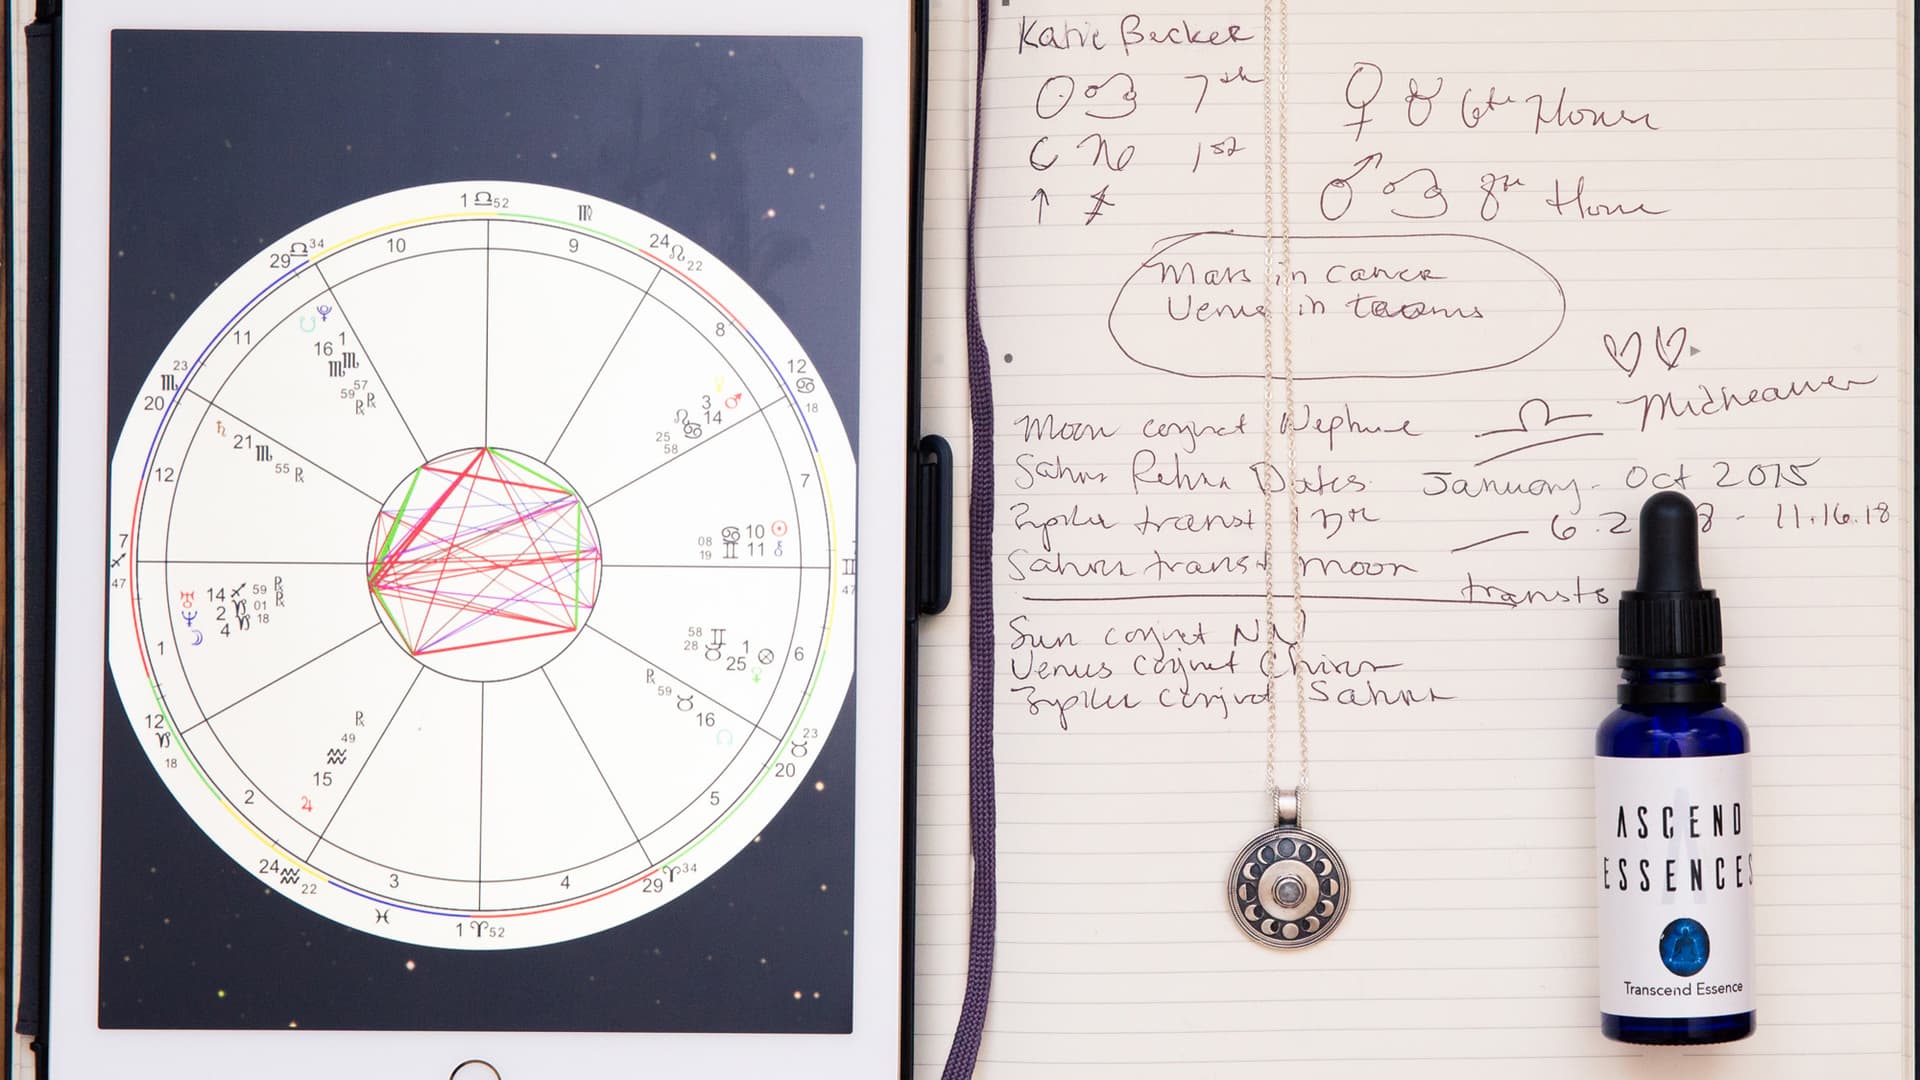 1 ♎ 52
♍
24 ♌ 22
29 ♎ 34
10
9
8
12 ♋ 18
11
☋ ♇
16 1
♏ ♏
59 57
℞ ℞
23 ♏ 20
☿ ♂
3 14
♌ ♋
25 58
♄ 21 ♏ 55 ℞
12
7
7 ♐ 47
08 ♋ 10 ☉
19 ♊ 11 ⚷
♊ 47
♅ 14 ♐ 59 ℞
♆ 2 ♑ 01 ℞
☽ 4 ♑ 18
1
58 ♊ 1 ⊗
28 ♉ 25 ♀
6
℞ 59 ♉ 16 ☊
12 ♑ 18
℞
49
♒
15
♃
23 ♉ 20
2
5
24 ♒ 22
3
4
29 ♈ 34
♓
1 ♈ 52
Katie Becker
☉ ♋ 7th ♀ ♉ 6th House
☾ 1st
♂ ♋ 8th House
↑ ♐
Mars in Cancer
Venus in
♡♡
Moon conjnct Nephune ♎ Midheaven
Saturn Return Dates January - Oct 2015
transt 6.2 8 - 11.16.18
Saturn transt moon
transts
Sun conjnct NN
Venus conjnct Chiron
conjnct Saturn
ASCEND
ESSENCES
Transcend Essence